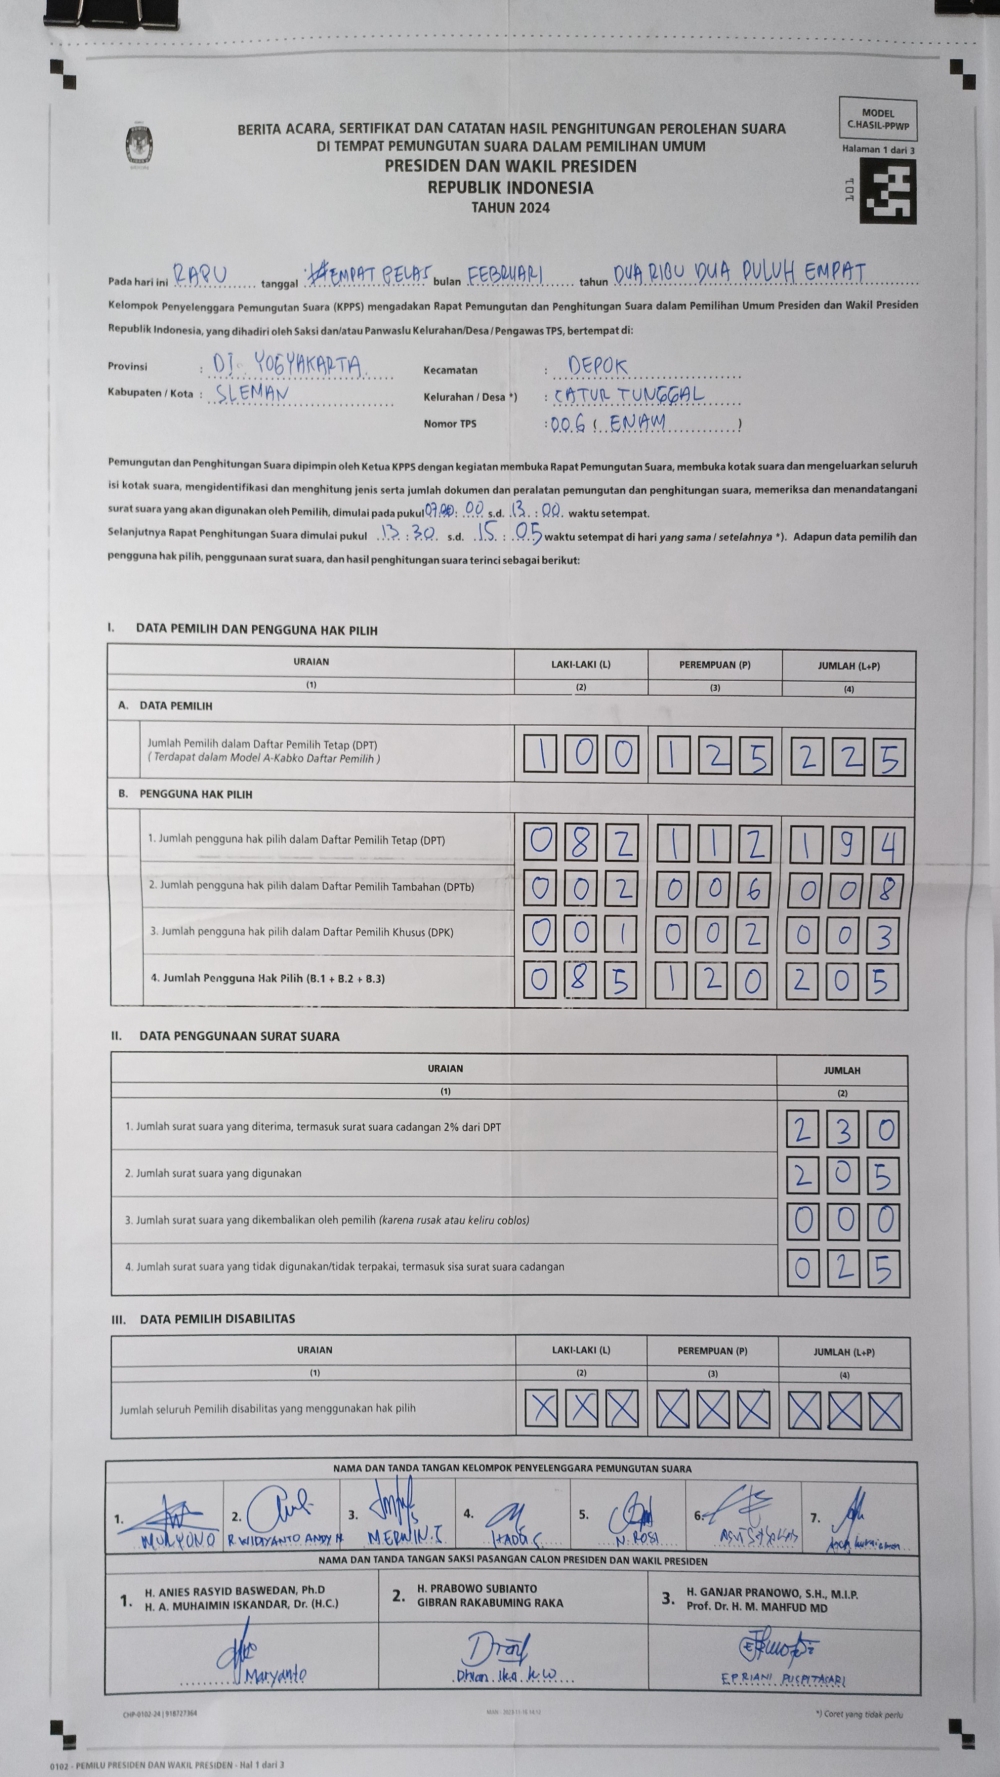 MODEL
C.HASIL-PPWP
Halaman 1 dari 3
101
BERITA ACARA, SERTIFIKAT DAN CATATAN HASIL PENGHITUNGAN PEROLEHAN SUARA
DI TEMPAT PEMUNGUTAN SUARA DALAM PEMILIHAN UMUM
PRESIDEN DAN WAKIL PRESIDEN
REPUBLIK INDONESIA
TAHUN 2024
Pada hari ini RABU tanggal EMPAT BELAS bulan FEBRUARI tahun DUA RIBU DUA PULUH EMPAT
Kelompok Penyelenggara Pemungutan Suara (KPPS) mengadakan Rapat Pemungutan dan Penghitungan Suara dalam Pemilihan Umum Presiden dan Wakil Presiden
Republik Indonesia, yang dihadiri oleh Saksi dan/atau Panwaslu Kelurahan/Desa/Pengawas TPS, bertempat di:
Provinsi : DI. YOGYAKARTA Kecamatan : DEPOK
Kabupaten / Kota : SLEMAN Kelurahan / Desa *) : CATUR TUNGGAL
Nomor TPS : 006 ( ENAM )
Pemungutan dan Penghitungan Suara dipimpin oleh Ketua KPPS dengan kegiatan membuka Rapat Pemungutan Suara, membuka kotak suara dan mengeluarkan seluruh
isi kotak suara, mengidentifikasi dan menghitung jenis serta jumlah dokumen dan peralatan pemungutan dan penghitungan suara, memeriksa dan menandatangani
surat suara yang akan digunakan oleh Pemilih, dimulai pada pukul 07 : 00 s.d. 13 : 00 waktu setempat.
Selanjutnya Rapat Penghitungan Suara dimulai pukul 13 : 30 s.d. 15 : 05 waktu setempat di hari yang sama / setelahnya *). Adapun data pemilih dan
pengguna hak pilih, penggunaan surat suara, dan hasil penghitungan suara terinci sebagai berikut:
I. DATA PEMILIH DAN PENGGUNA HAK PILIH
URAIAN LAKI-LAKI (L) PEREMPUAN (P) JUMLAH (L+P)
(1) (2) (3) (4)
A. DATA PEMILIH
Jumlah Pemilih dalam Daftar Pemilih Tetap (DPT) 1 0 0 1 2 5 2 2 5
( Terdapat dalam Model A-Kabko Daftar Pemilih )
B. PENGGUNA HAK PILIH
1. Jumlah pengguna hak pilih dalam Daftar Pemilih Tetap (DPT) 0 8 2 1 1 2 1 9 4
2. Jumlah pengguna hak pilih dalam Daftar Pemilih Tambahan (DPTb) 0 0 2 0 0 6 0 0 8
3. Jumlah pengguna hak pilih dalam Daftar Pemilih Khusus (DPK) 0 0 1 0 0 2 0 0 3
4. Jumlah Pengguna Hak Pilih (B.1 + B.2 + B.3) 0 8 5 1 2 0 2 0 5
II. DATA PENGGUNAAN SURAT SUARA
URAIAN JUMLAH
(1) (2)
1. Jumlah surat suara yang diterima, termasuk surat suara cadangan 2% dari DPT 2 3 0
2. Jumlah surat suara yang digunakan 2 0 5
3. Jumlah surat suara yang dikembalikan oleh pemilih (karena rusak atau keliru coblos) 0 0 0
4. Jumlah surat suara yang tidak digunakan/tidak terpakai, termasuk sisa surat suara cadangan 0 2 5
III. DATA PEMILIH DISABILITAS
URAIAN LAKI-LAKI (L) PEREMPUAN (P) JUMLAH (L+P)
(1) (2) (3) (4)
Jumlah seluruh Pemilih disabilitas yang menggunakan hak pilih X X X X X X X X X
NAMA DAN TANDA TANGAN KELOMPOK PENYELENGGARA PEMUNGUTAN SUARA
1. 2. 3. 4. 5. 6. 7.
MULYONO R. WIDIYANTO ANDY MERWIN.I N. ROSI
NAMA DAN TANDA TANGAN SAKSI PASANGAN CALON PRESIDEN DAN WAKIL PRESIDEN
1. H. ANIES RASYID BASWEDAN, Ph.D
H. A. MUHAIMIN ISKANDAR, Dr. (H.C.)
2. H. PRABOWO SUBIANTO
GIBRAN RAKABUMING RAKA
3. H. GANJAR PRANOWO, S.H., M.I.P.
Prof. Dr. H. M. MAHFUD MD
Maryanto Dhian Ika K W EPRIANI PUSPITASARI
CHP-0102-24 | 918727364
*) Coret yang tidak perlu
0102 - PEMILU PRESIDEN DAN WAKIL PRESIDEN - Hal 1 dari 3